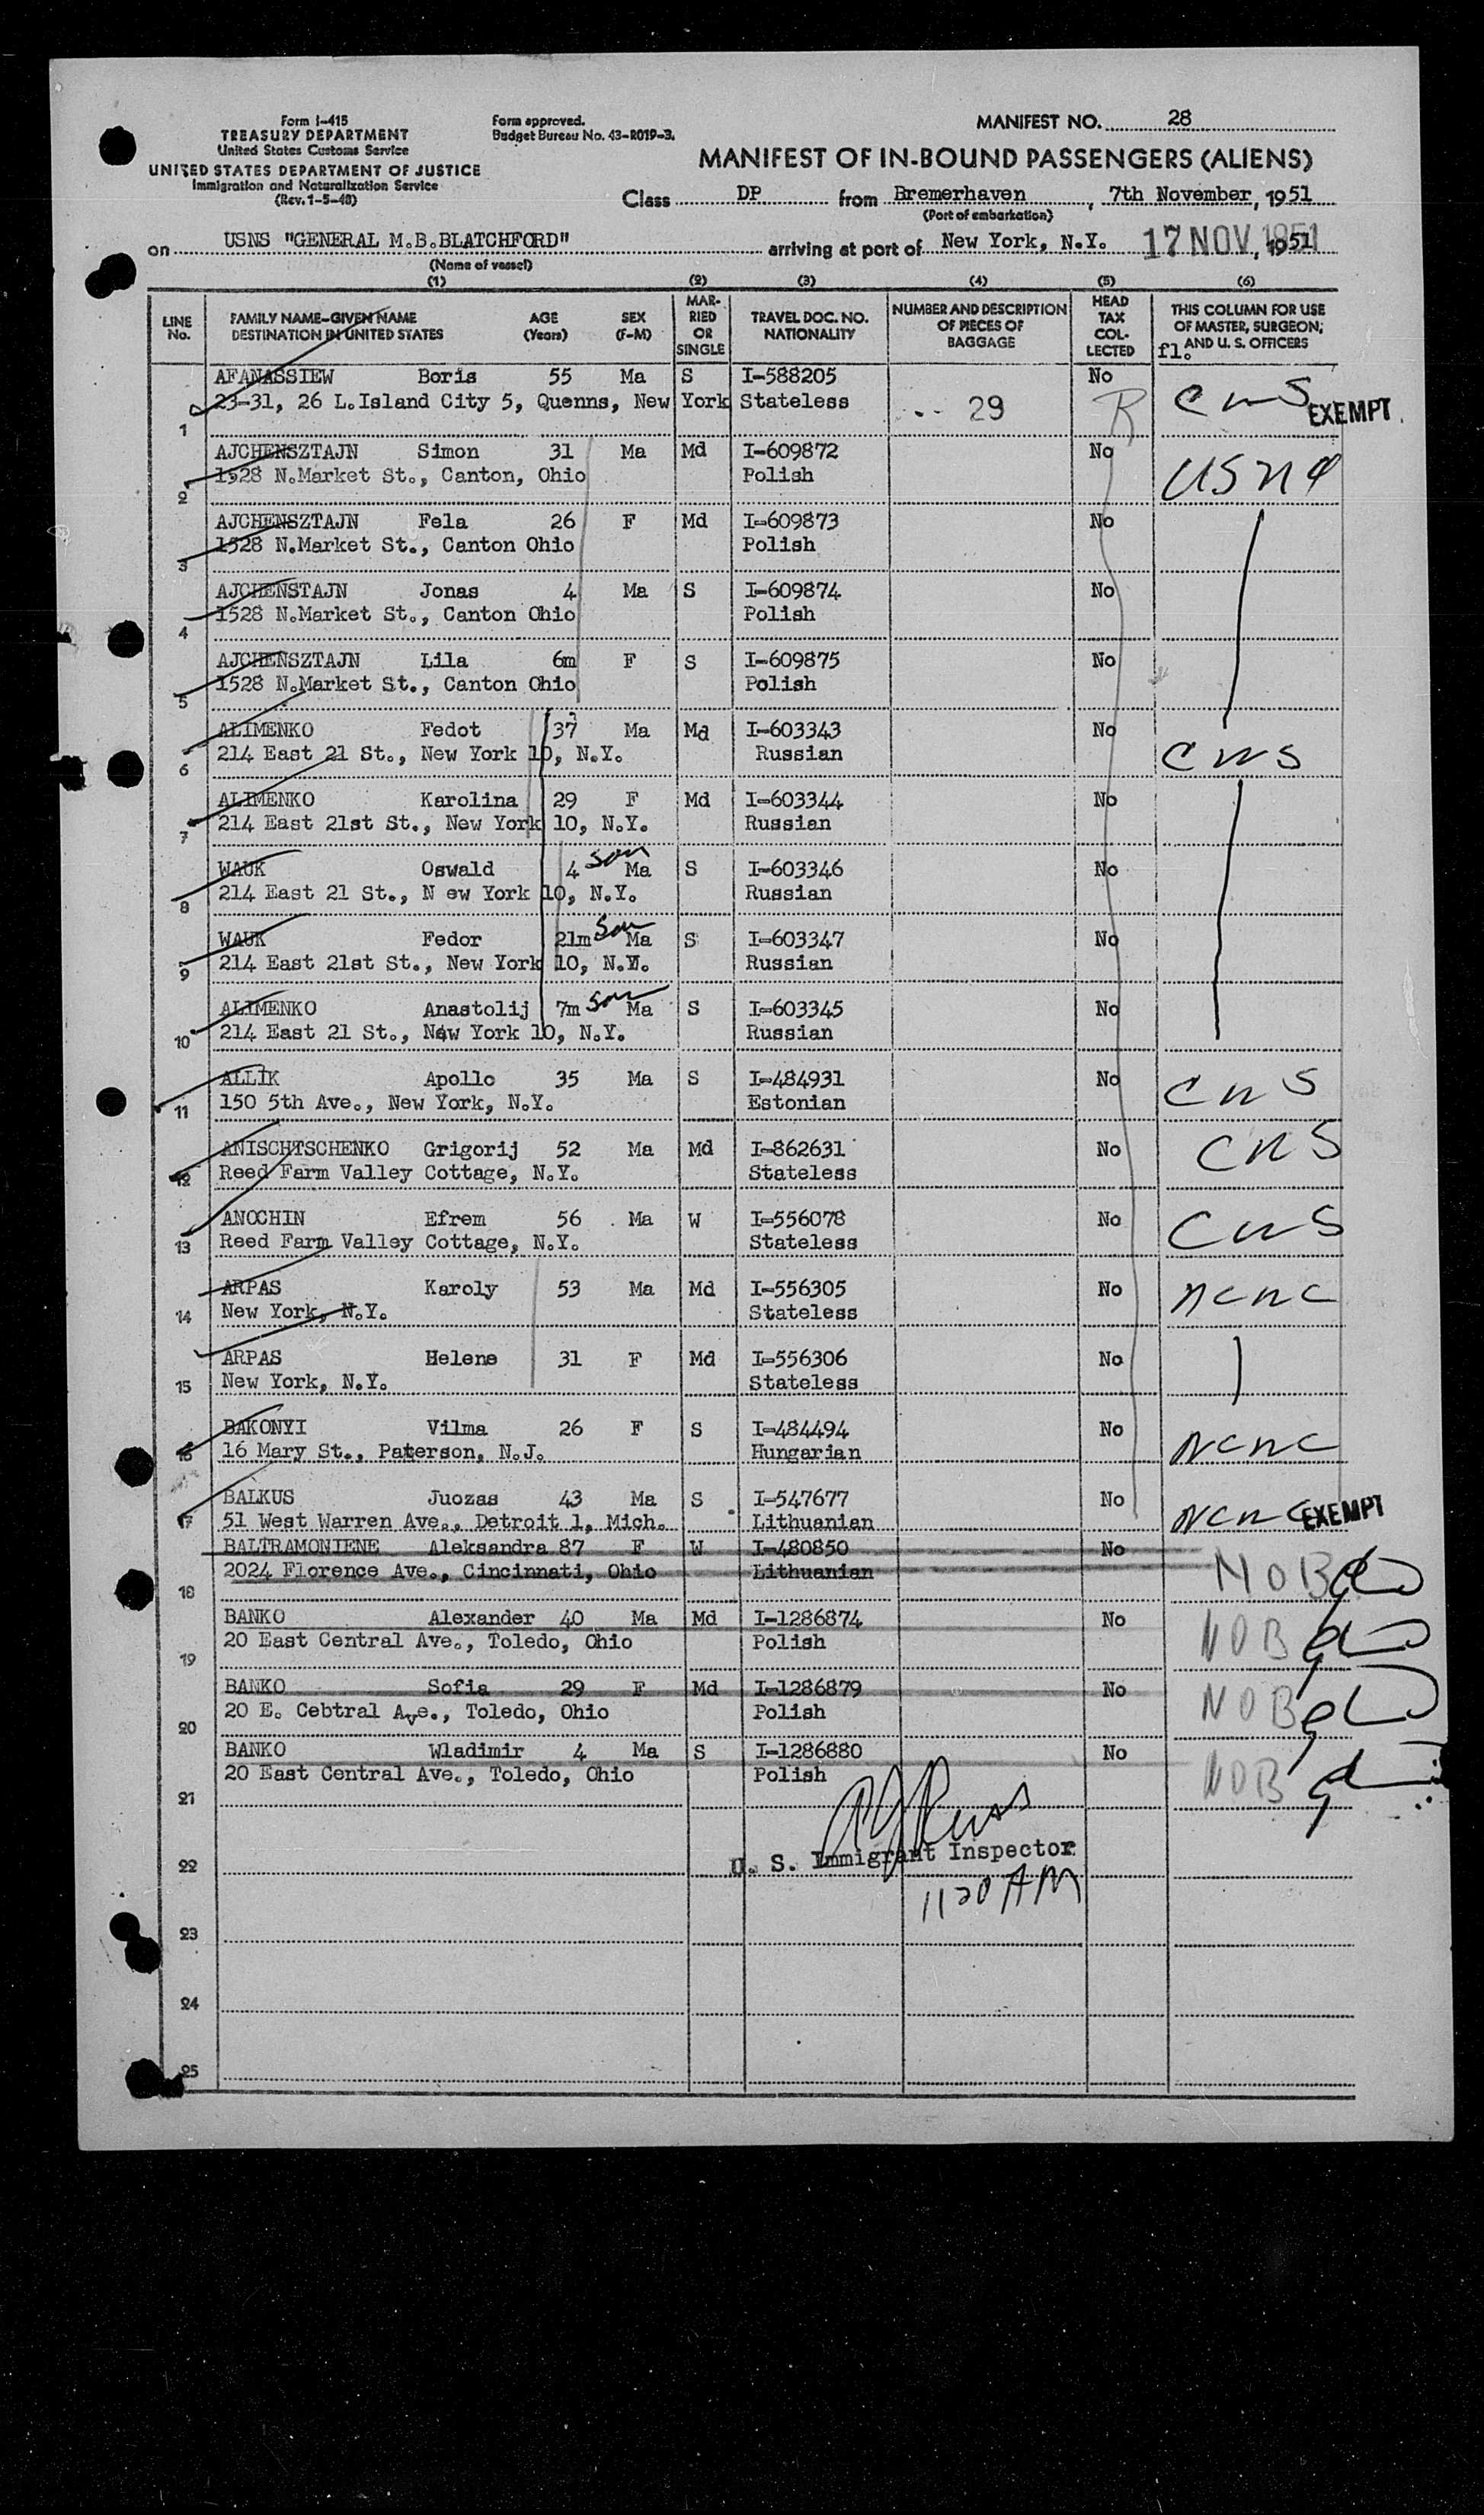 Form I-415
TREASURY DEPARTMENT
United States Customs Service
UNITED STATES DEPARTMENT OF JUSTICE
Immigration and Naturalization Service
(Rev. 1-5-48)
Form approved.
Budget Bureau No. 43-R019-3.
MANIFEST NO. 28
MANIFEST OF IN-BOUND PASSENGERS (ALIENS)
Class DP from Bremerhaven, 7th November, 1951
(Port of embarkation)
on USNS "GENERAL M.B.BLATCHFORD" arriving at port of New York, N.Y. 17 NOV 1951, 1951
(Name of vessel)
(1) (2) (3) (4) (5) (6)
LINE No. FAMILY NAME—GIVEN NAME DESTINATION IN UNITED STATES AGE (Years) SEX (F-M) MARRIED OR SINGLE TRAVEL DOC. NO. NATIONALITY NUMBER AND DESCRIPTION OF PIECES OF BAGGAGE HEAD TAX COLLECTED THIS COLUMN FOR USE OF MASTER, SURGEON, AND U. S. OFFICERS
fl.
AFANASSIEW Boris 55 Ma S I-588205 No CNS EXEMPT
1 23-31, 26 L.Island City 5, Quenns, New York Stateless 29 R
AJCHENSZTAJN Simon 31 Ma Md I-609872 No USNA
2 1528 N.Market St., Canton, Ohio Polish
AJCHENSZTAJN Fela 26 F Md I-609873 No
3 1528 N.Market St., Canton Ohio Polish
AJCHENSTAJN Jonas 4 Ma S I-609874 No
4 1528 N.Market St., Canton Ohio Polish
AJCHENSZTAJN Lila 6m F S I-609875 No
5 1528 N.Market St., Canton Ohio Polish
ALIMENKO Fedot 37 Ma Md I-603343 No
6 214 East 21 St., New York 10, N.Y. Russian CWS
ALIMENKO Karolina 29 F Md I-603344 No
7 214 East 21st St., New York 10, N.Y. Russian
WAUK Oswald 4 son Ma S I-603346 No
8 214 East 21 St., N ew York 10, N.Y. Russian
WAUK Fedor 21m Son Ma S I-603347 No
9 214 East 21st St., New York 10, N.Y. Russian
ALIMENKO Anastolij 7m Son Ma S I-603345 No
10 214 East 21 St., New York 10, N.Y. Russian
ALLIK Apollo 35 Ma S I-484931 No CNS
11 150 5th Ave., New York, N.Y. Estonian
ANISCHTSCHENKO Grigorij 52 Ma Md I-862631 No CNS
12 Reed Farm Valley Cottage, N.Y. Stateless
ANOCHIN Efrem 56 Ma W I-556078 No CWS
13 Reed Farm Valley Cottage, N.Y. Stateless
ARPAS Karoly 53 Ma Md I-556305 No NCNC
14 New York, N.Y. Stateless
ARPAS Helene 31 F Md I-556306 No
15 New York, N.Y. Stateless
BAKONYI Vilma 26 F S I-484494 No NCNC
16 16 Mary St., Paterson, N.J. Hungarian
BALKUS Juozas 43 Ma S I-547677 No NCNC EXEMPT
17 51 West Warren Ave., Detroit 1, Mich. Lithuanian
BALTRAMONIENE Aleksandra 87 F W I-480850 No NOB
18 2024 Florence Ave., Cincinnati, Ohio Lithuanian
BANKO Alexander 40 Ma Md I-1286874 No NOB
19 20 East Central Ave., Toledo, Ohio Polish
BANKO Sofia 29 F Md I-1286879 No NOB
20 20 E. Cebtral Ave., Toledo, Ohio Polish
BANKO Wladimir 4 Ma S I-1286880 No NOB
21 20 East Central Ave., Toledo, Ohio Polish
22 U. S. Immigrant Inspector
1120 AM
23
24
25